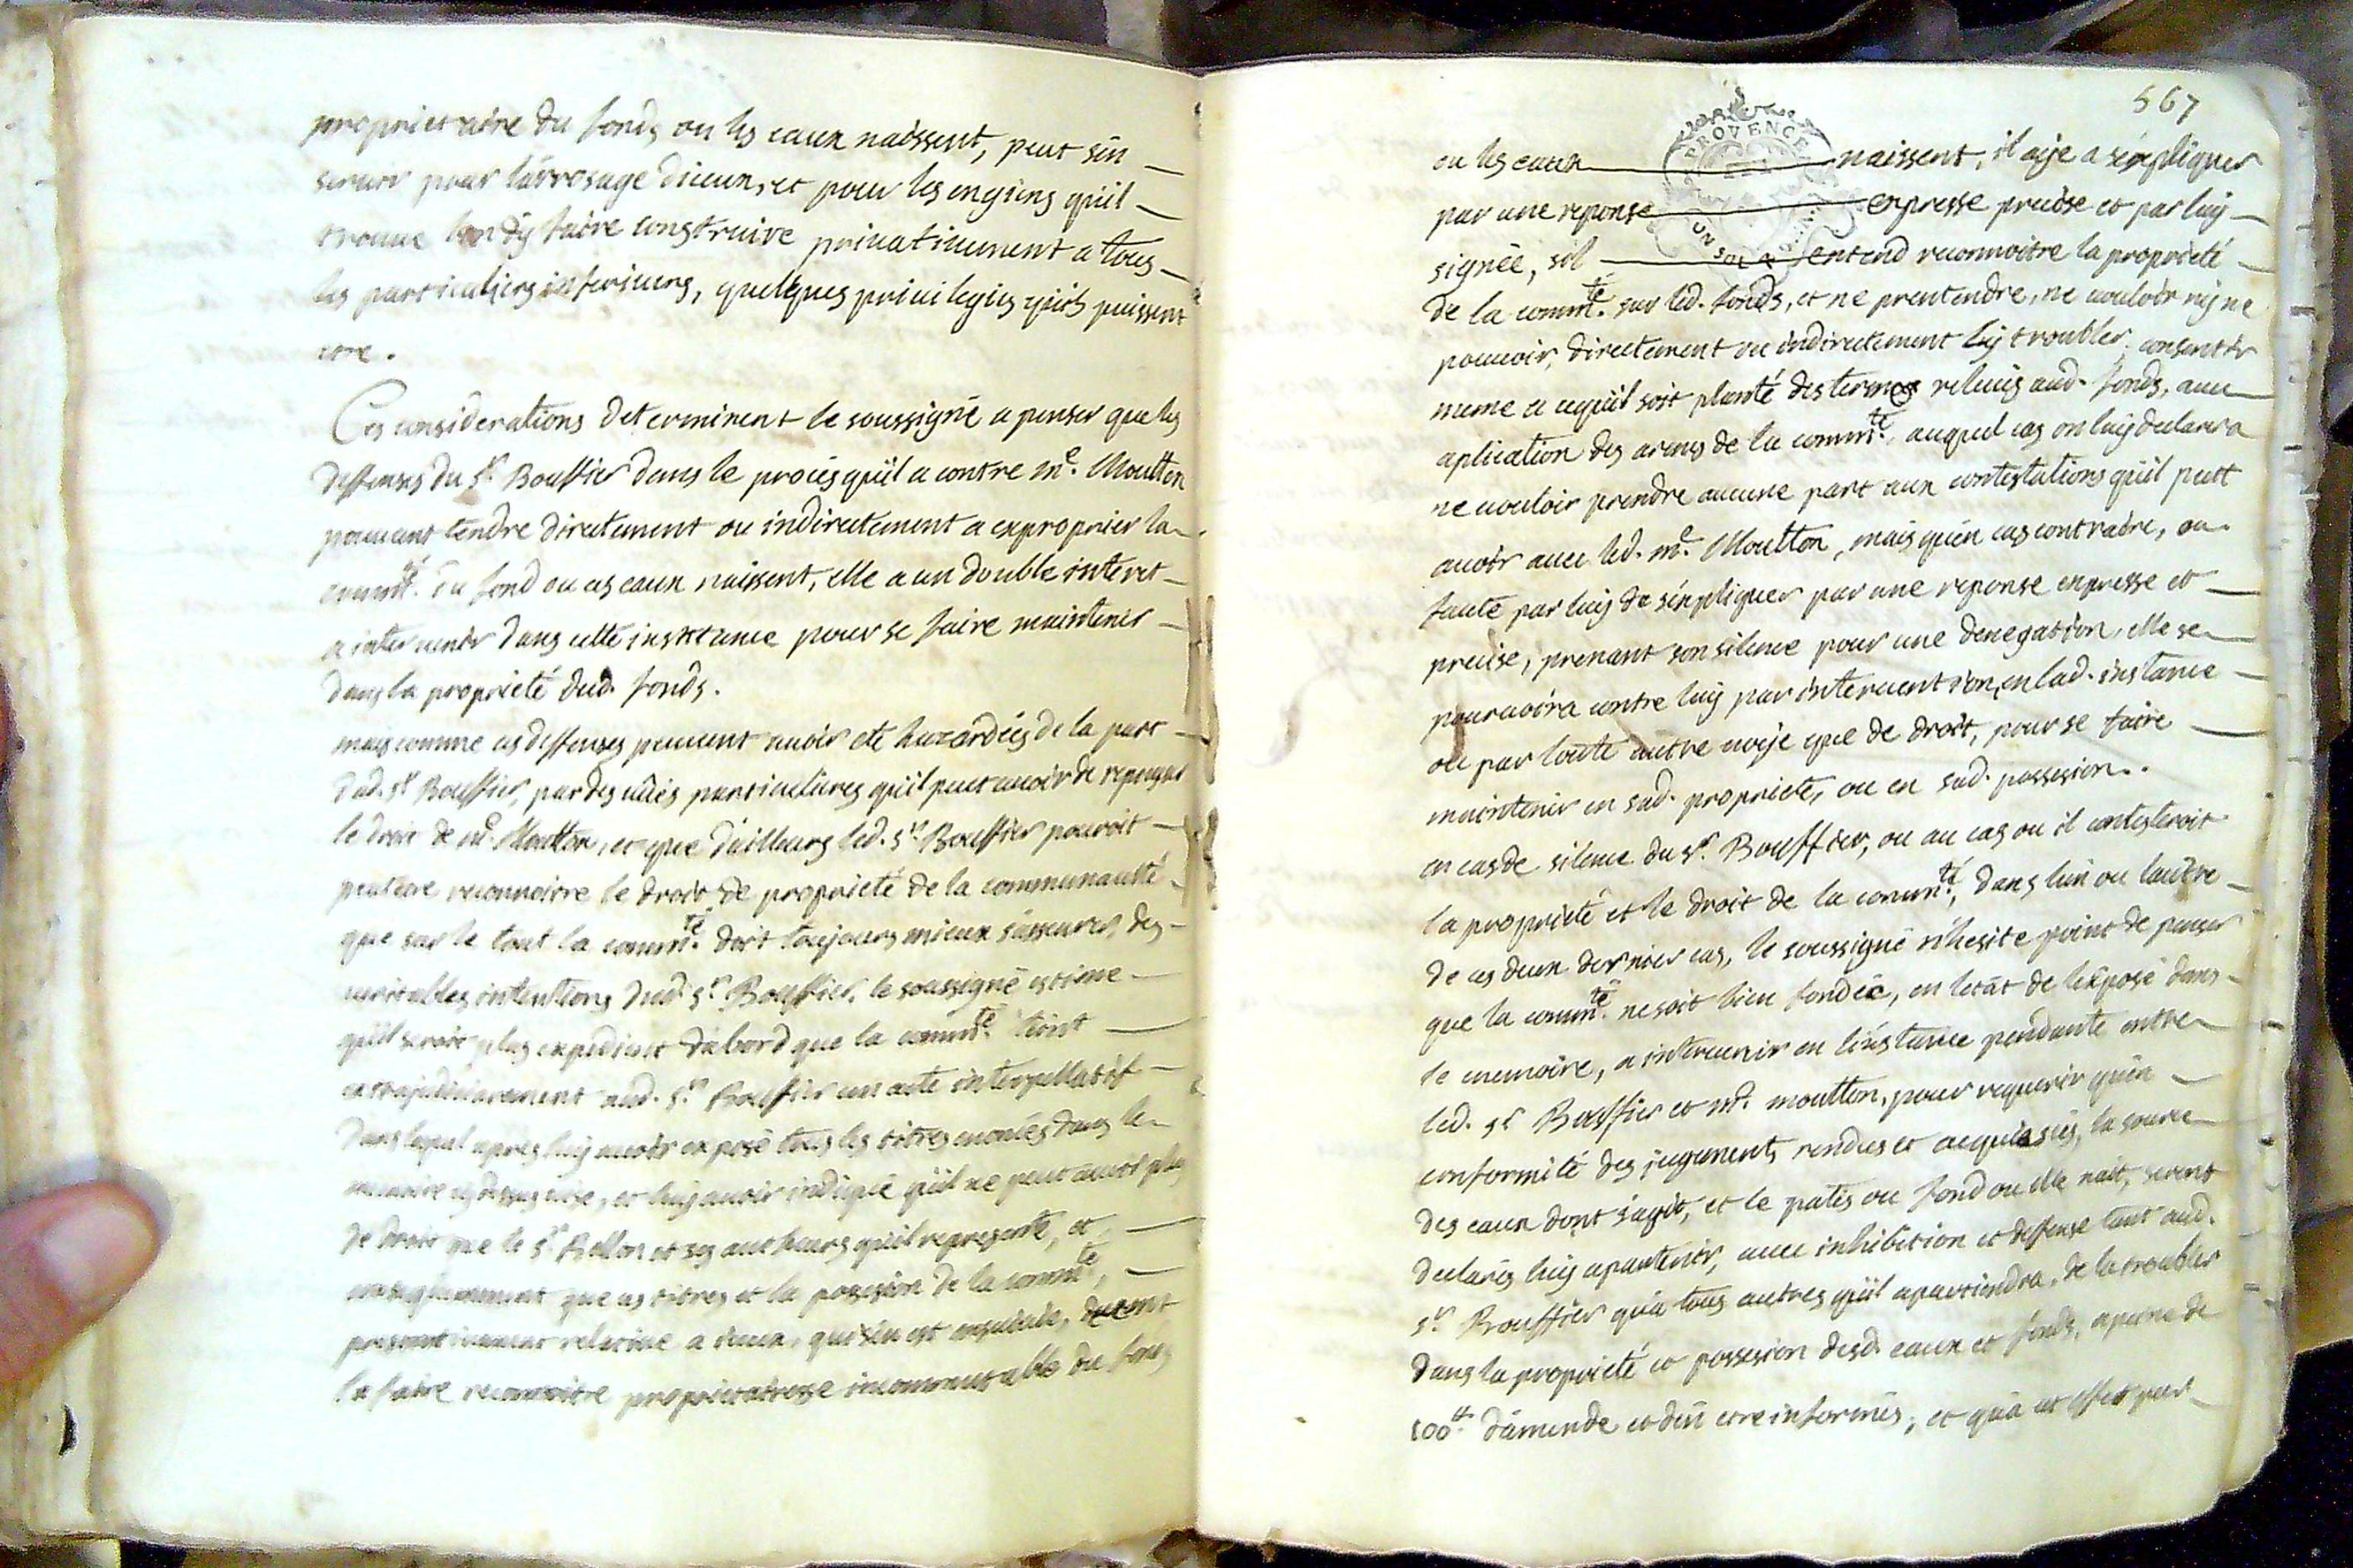 proprietaire du fonds ou les eaux naissent, peut s'en
servir pour l'arrosage d'iceux, et pour les engins qu'il
trouve bon d'y faire construire privativement a tous
les particuliers inferieurs, quelques privilegiés qu'ils puissent
etre.
Ces considerations determinent le soussigné a penser que les
deffenses du sr. Bouffier dans le procés qu'il a contre me. Moutton
pouvant tendre directement ou indirectement a exproprier la
commté. du fond ou ces eaux naissent, elle a un double interet
a intervenir dans cette instance pour se faire maintenir
dans la proprieté dud. fonds.
mais comme ces deffenses peuvent avoir eté hazardées de la part
dud. sr. Bouffier, par des particulieres qu'il peut avoir de
le droit de me. Moutton, et que d'ailleurs led. sr. Bouffier pouvoit
peutetre reconnoitre le droit de proprieté de la communauté
que sur le tout la commté. doit toujours mieux s'asseurer des
veritables intentions dud. sr. Bouffier, le soussigné estime
qu'il seroit plus expedient d'abord que la commté. tint
extrajudiciairement aud. sr. Bouffier un acte interpellatif
dans lequel apres luy avoir exposé tous les titres enoncés dans le
memoire, et luy avoir indiqué qu'il ne peut avoir plus
de droit que le sr. Bellon et ses autheurs qu'il represente, et
consequemment que ces titres et la possession de la commté,
relative a iceux, qui s'en est ensuivie, doivent
la faire reconnoitre proprietaresse incommutable du fonds
567
PROVENCE
UN SOL
ou les eaux naissent, il aye a s'expliquer
par une reponse expresse precise et par luy
signée, s'il entend reconnoitre la proprieté
de la commté. sur led. fonds, et ne pretendre, ne vouloir ny ne
pouvoir, directement ou indirectement l'y troubler, consentir
meme a cequ'il soit planté des termes relevés aud. fonds, avec
aplication des armes de la commté. auquel cas on luy declarera
ne vouloir prendre aucune part aux contestations qu'il peut
avoir avec led. me. Moutton, mais qu'en cas contraire, ou
faute par luy de s'expliquer par une reponse expresse et
precise, prenant son silence pour une denegation, elle se
pourvoira contre luy par intervention, en lad. instance
ou par toute autre voye que de droit, pour se faire
maintenir en sad. proprieté, ou en sad. possession.
en cas de silence du sr. Bouffier, ou au cas ou il contesteroit
la proprieté et le droit de la commté, dans l'un ou l'autre
de ces deux dernier cas, le soussigné n'hesite point de penser
que la commté. ne soit bien fondée, en l'etat de l'exposé dans
le memoire, a intervenir en l'instance pendante entre
led. sr. Bouffier et me. moutton, pour requerir qu'en
conformité des jugements rendus et acquiessés, la source
des eaux dont s'agit, et le patis ou fond ou elle nait, seront
declarés luy apartenir, avec inhibition et deffense tant aud.
sr. Bouffier qu'a tous autres qu'il apartiendra, de la troubler
dans la proprieté et possession desd. eaux et fonds, a peine de
100tt. d'amende et d'en etre informés, et qu'a cet effet